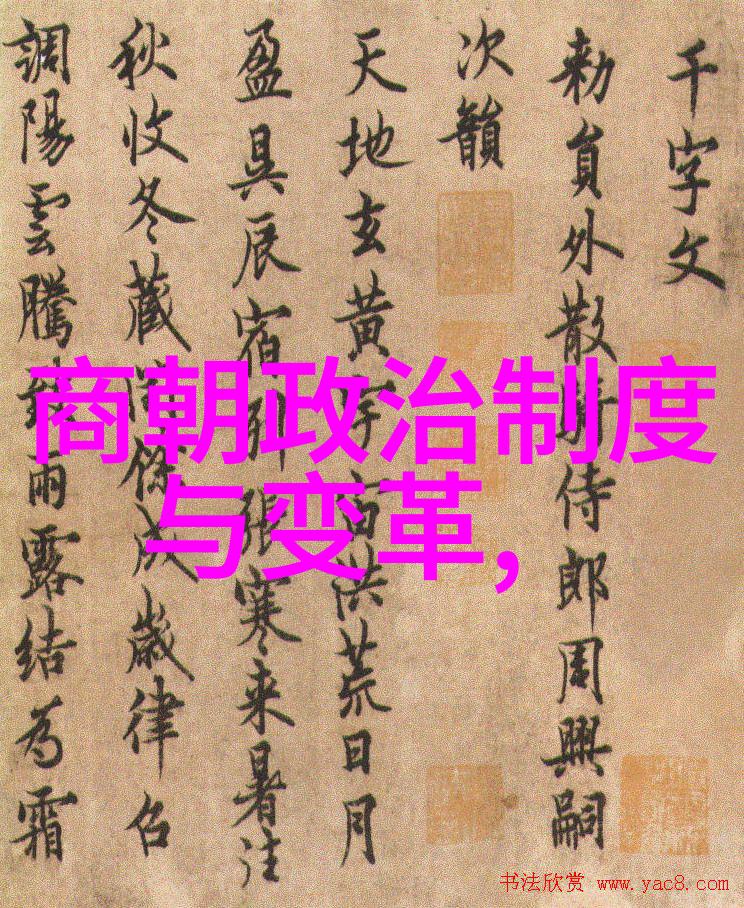 千字文
勑員外散騎侍郎周興嗣
次韻
天地玄黃宇宙洪荒日月
盈昃辰宿列張寒来暑往
秋收冬藏閏餘成歲律召
調陽雲騰致雨露結為霜
商朝政治制度
与变革,
书法欣赏 www.yac8.com